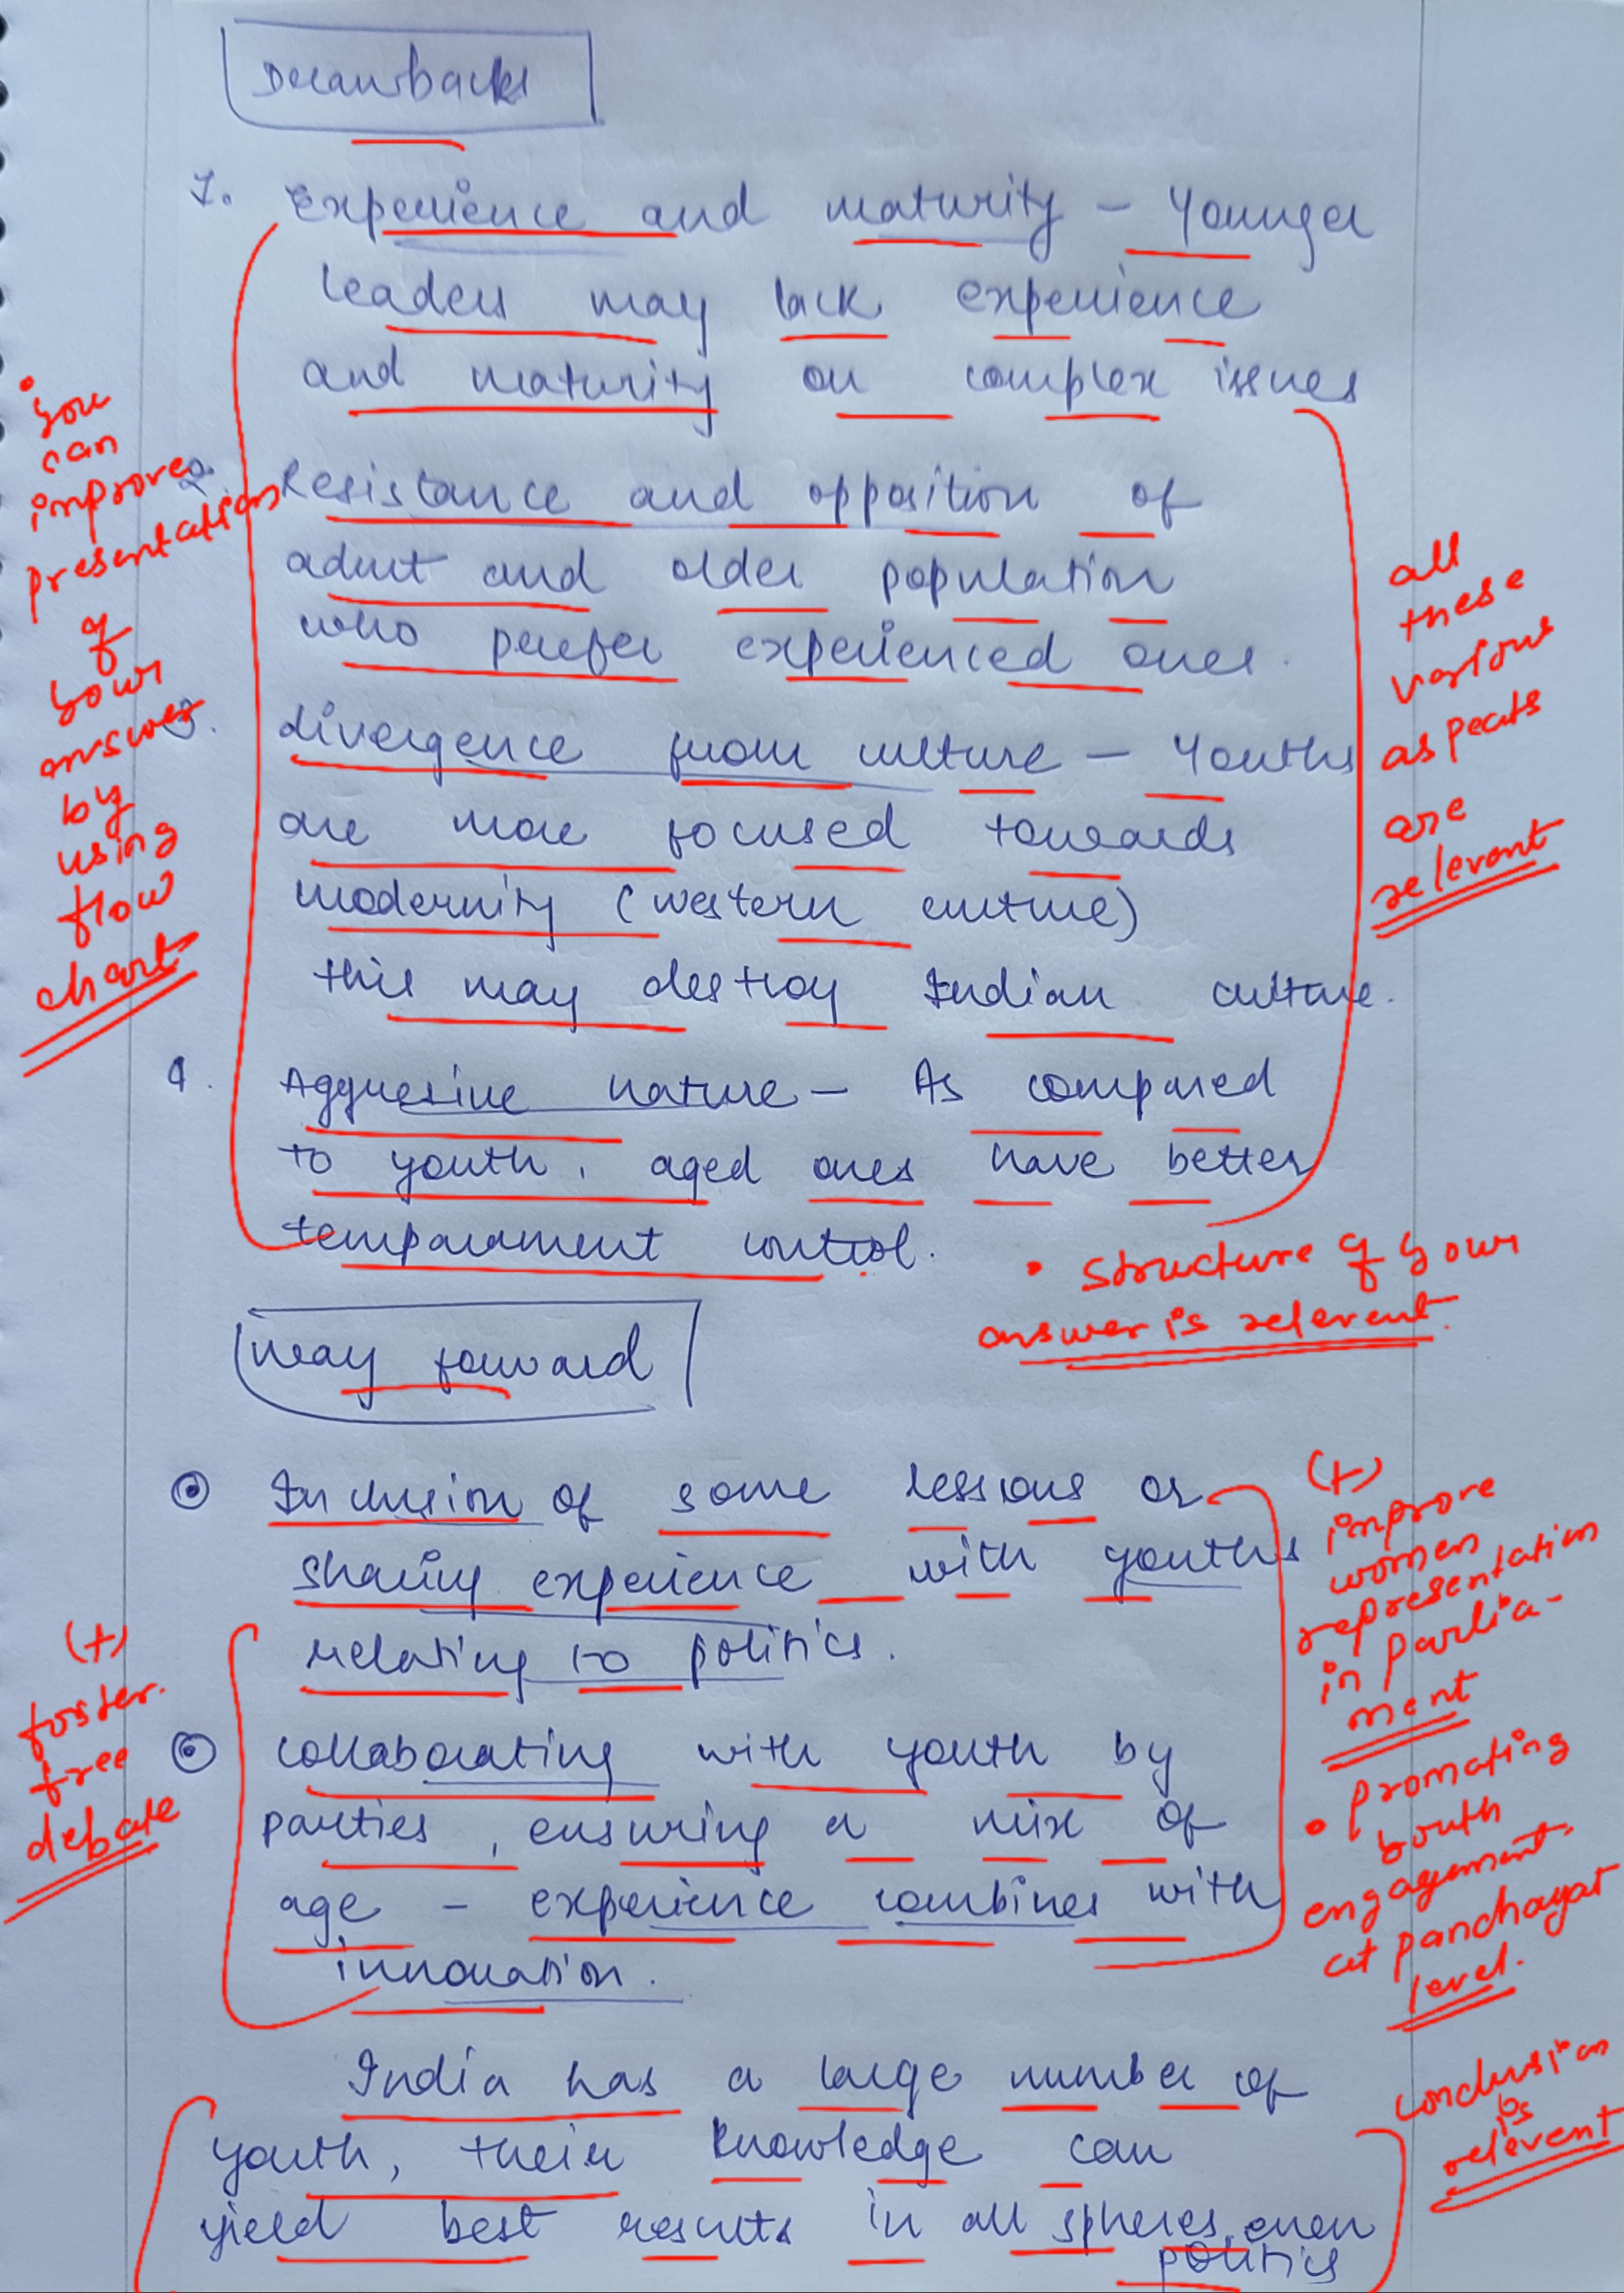 Drawbacks
1. Experience and maturity - Younger
leaders may lack experience
and maturity on complex issues
2. Resistance and opposition of
adult and older population
who prefer experienced ones.
3. divergence from culture - Youths
are more focused towards
modernity (western culture)
this may destroy Indian culture.
4. Aggresive nature - As compared
to youth, aged ones have better
temparament control.
• you
can
improve
presentation
of
your
answer
by
using
flow
chart
all
these
various
aspects
are
relevant
• structure of your
answer is relevent.
Way forward
Inclusion of some lessons or
sharing experience with youths
relating to politics.
collaborating with youth by
parties, ensuring a mix of
age - experience combines with
innovation.
(+)
foster
free
debate
(+)
improve
women
representation
in parlia-
ment
• promoting
youth
engagement
at panchayat
level.
India has a large number of
youth, their knowledge can
yield best results in all spheres, even
politics
conclusion
is
relevent